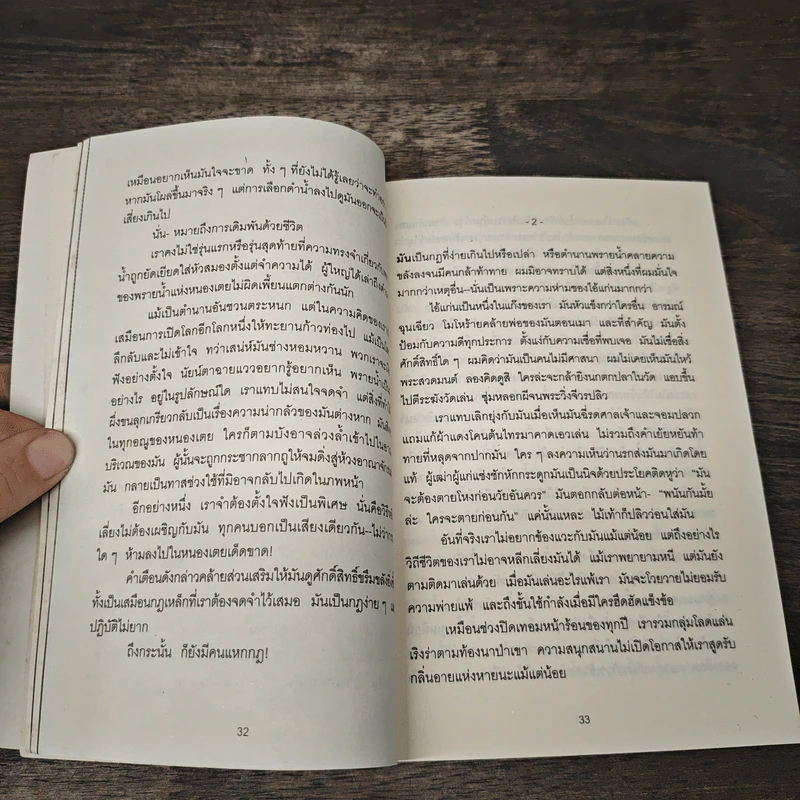 เหมือนอยากเห็นมันใจจะขาด ทั้ง ๆ ที่ยังไม่ได้รู้เลยว่าจะทำ
หากมันโผล่ขึ้นมาจริง ๆ แต่การเลือกดำน้ำลงไปดูมันออกจะเป็น
เสี่ยงเกินไป
นั่น- หมายถึงการเดิมพันด้วยชีวิต
เราคงไม่ใช่รุ่นแรกหรือรุ่นสุดท้ายที่ความทรงจำเกี่ยวกับ
น้ำถูกยัดเยียดใส่หัวสมองตั้งแต่จำความได้ ผู้ใหญ่ได้เล่าถึง
ของพรายน้ำแห่งหนองเตยไม่ผิดเพี้ยนแตกต่างกันนัก
แม้เป็นตำนานอันชวนตระหนก แต่ในความคิดของเรา
เสมือนการเปิดโลกอีกโลกหนึ่งให้ทะยานก้าวท่องไป แม้เป็น
ลึกลับและไม่เข้าใจ ทว่าเสน่ห์มันช่างหอมหวาน พวกเราจะ
ฟังอย่างตั้งใจ นัยน์ตาฉายแววอยากรู้อยากเห็น พรายน้ำเป็น
อย่างไร อยู่ในรูปลักษณ์ใด เราแทบไม่สนใจจดจำ แต่สิ่งที่ทำ
ผึ่งขนลุกเกรียวกลับเป็นเรื่องความน่ากลัวของมันต่างหาก มัน
ในทุกอณูของหนองเตย ใครก็ตามบังอาจล่วงล้ำเข้าไปใน
บริเวณของมัน ผู้นั้นจะถูกกระชากลากถูให้จมดิ่งสู่ห้วงอาณาจักร
มัน กลายเป็นทาสช่วงใช้ที่มิอาจกลับไปเกิดในภพหน้า
อีกอย่างหนึ่ง เราจำต้องตั้งใจฟังเป็นพิเศษ นั่นคือวิธี
เลี่ยงไม่ต้องเผชิญกับมัน ทุกคนบอกเป็นเสียงเดียวกัน--ไม่ว่า
ใด ๆ ห้ามลงไปในหนองเตยเด็ดขาด!
คำเตือนดังกล่าวคล้ายส่วนเสริมให้มันดูศักดิ์สิทธิ์ขรึมขลัง
ทั้งเป็นเสมือนกฎเหล็กที่เราต้องจดจำไว้เสมอ มันเป็นกฎง่าย ๆ
ปฏิบัติไม่ยาก
ถึงกระนั้น ก็ยังมีคนแหกกฎ!
32
- 2 -
มันเป็นกฎที่ง่ายเกินไปหรือเปล่า หรือตำนานพรายน้ำคลายความ
ขลังลงจนมีคนกล้าท้าทาย ผมมิอาจทราบได้ แต่สิ่งหนึ่งที่ผมมั่นใจ
มากกว่าเหตุอื่น--นั่นเป็นเพราะความห่ามของไอ้แก่นมากกว่า
ไอ้แก่นเป็นหนึ่งในแก๊งของเรา มันหัวแข็งกว่าใครอื่น อารมณ์
ฉุนเฉียว โมโหร้ายคล้ายพ่อของมันตอนเมา และที่สำคัญ มันตั้ง
ป้อมกับความดีทุกประการ ตั้งแต่กับความเชื่อที่พบเจอ มันไม่เชื่อสิ่ง
ศักดิ์สิทธิ์ใด ๆ ผมคิดว่ามันเป็นคนไม่มีศาสนา ผมไม่เคยเห็นมันไหว้
พระสวดมนต์ ลองคิดดูสิ ใครล่ะจะกล้ายิงนกตกปลาในวัด แอบขึ้น
ไปตีระฆังวัดเล่น ซุ่มหลอกผีจนพระวิ่งจีวรปลิว
เราแทบเลิกยุ่งกับมันเมื่อเห็นมันฉี่รดศาลเจ้าและจอมปลวก
แถมแก้ผ้าแดงโคนต้นไทรมาคาดเอวเล่น ไม่รวมถึงคำเย้ยหยันท้า
ทายที่หลุดจากปากมัน ใคร ๆ ลงความเห็นว่านรกส่งมันมาเกิดโดย
แท้ ผู้เฒ่าผู้แก่แช่งชักหักกระดูกมันเป็นนิจด้วยประโยคติดหูว่า “มัน
จะต้องตายโหงก่อนวัยอันควร” มันตอกกลับต่อหน้า- “พนันกันมั้ย
ล่ะ ใครจะตายก่อนกัน” แค่นั้นแหละ ไม้เท้าก็ปลิวว่อนใส่มัน
อันที่จริงเราไม่อยากข้องแวะกับมันแม้แต่น้อย แต่ถึงอย่างไร
วิถีชีวิตของเราไม่อาจหลีกเลี่ยงมันได้ แม้เราพยายามหนี แต่มันยัง
ตามติดมาเล่นด้วย เมื่อมันเล่นอะไรแพ้เรา มันจะโวยวายไม่ยอมรับ
ความพ่ายแพ้ และถึงขั้นใช้กำลังเมื่อมีใครฮึดฮัดแข็งข้อ
เหมือนช่วงปิดเทอมหน้าร้อนของทุกปี เรารวมกลุ่มโลดแล่น
เริงร่าตามท้องนาป่าเขา ความสนุกสนานไม่เปิดโอกาสให้เราสูดรับ
กลิ่นอายแห่งหายนะแม้แต่น้อย
33